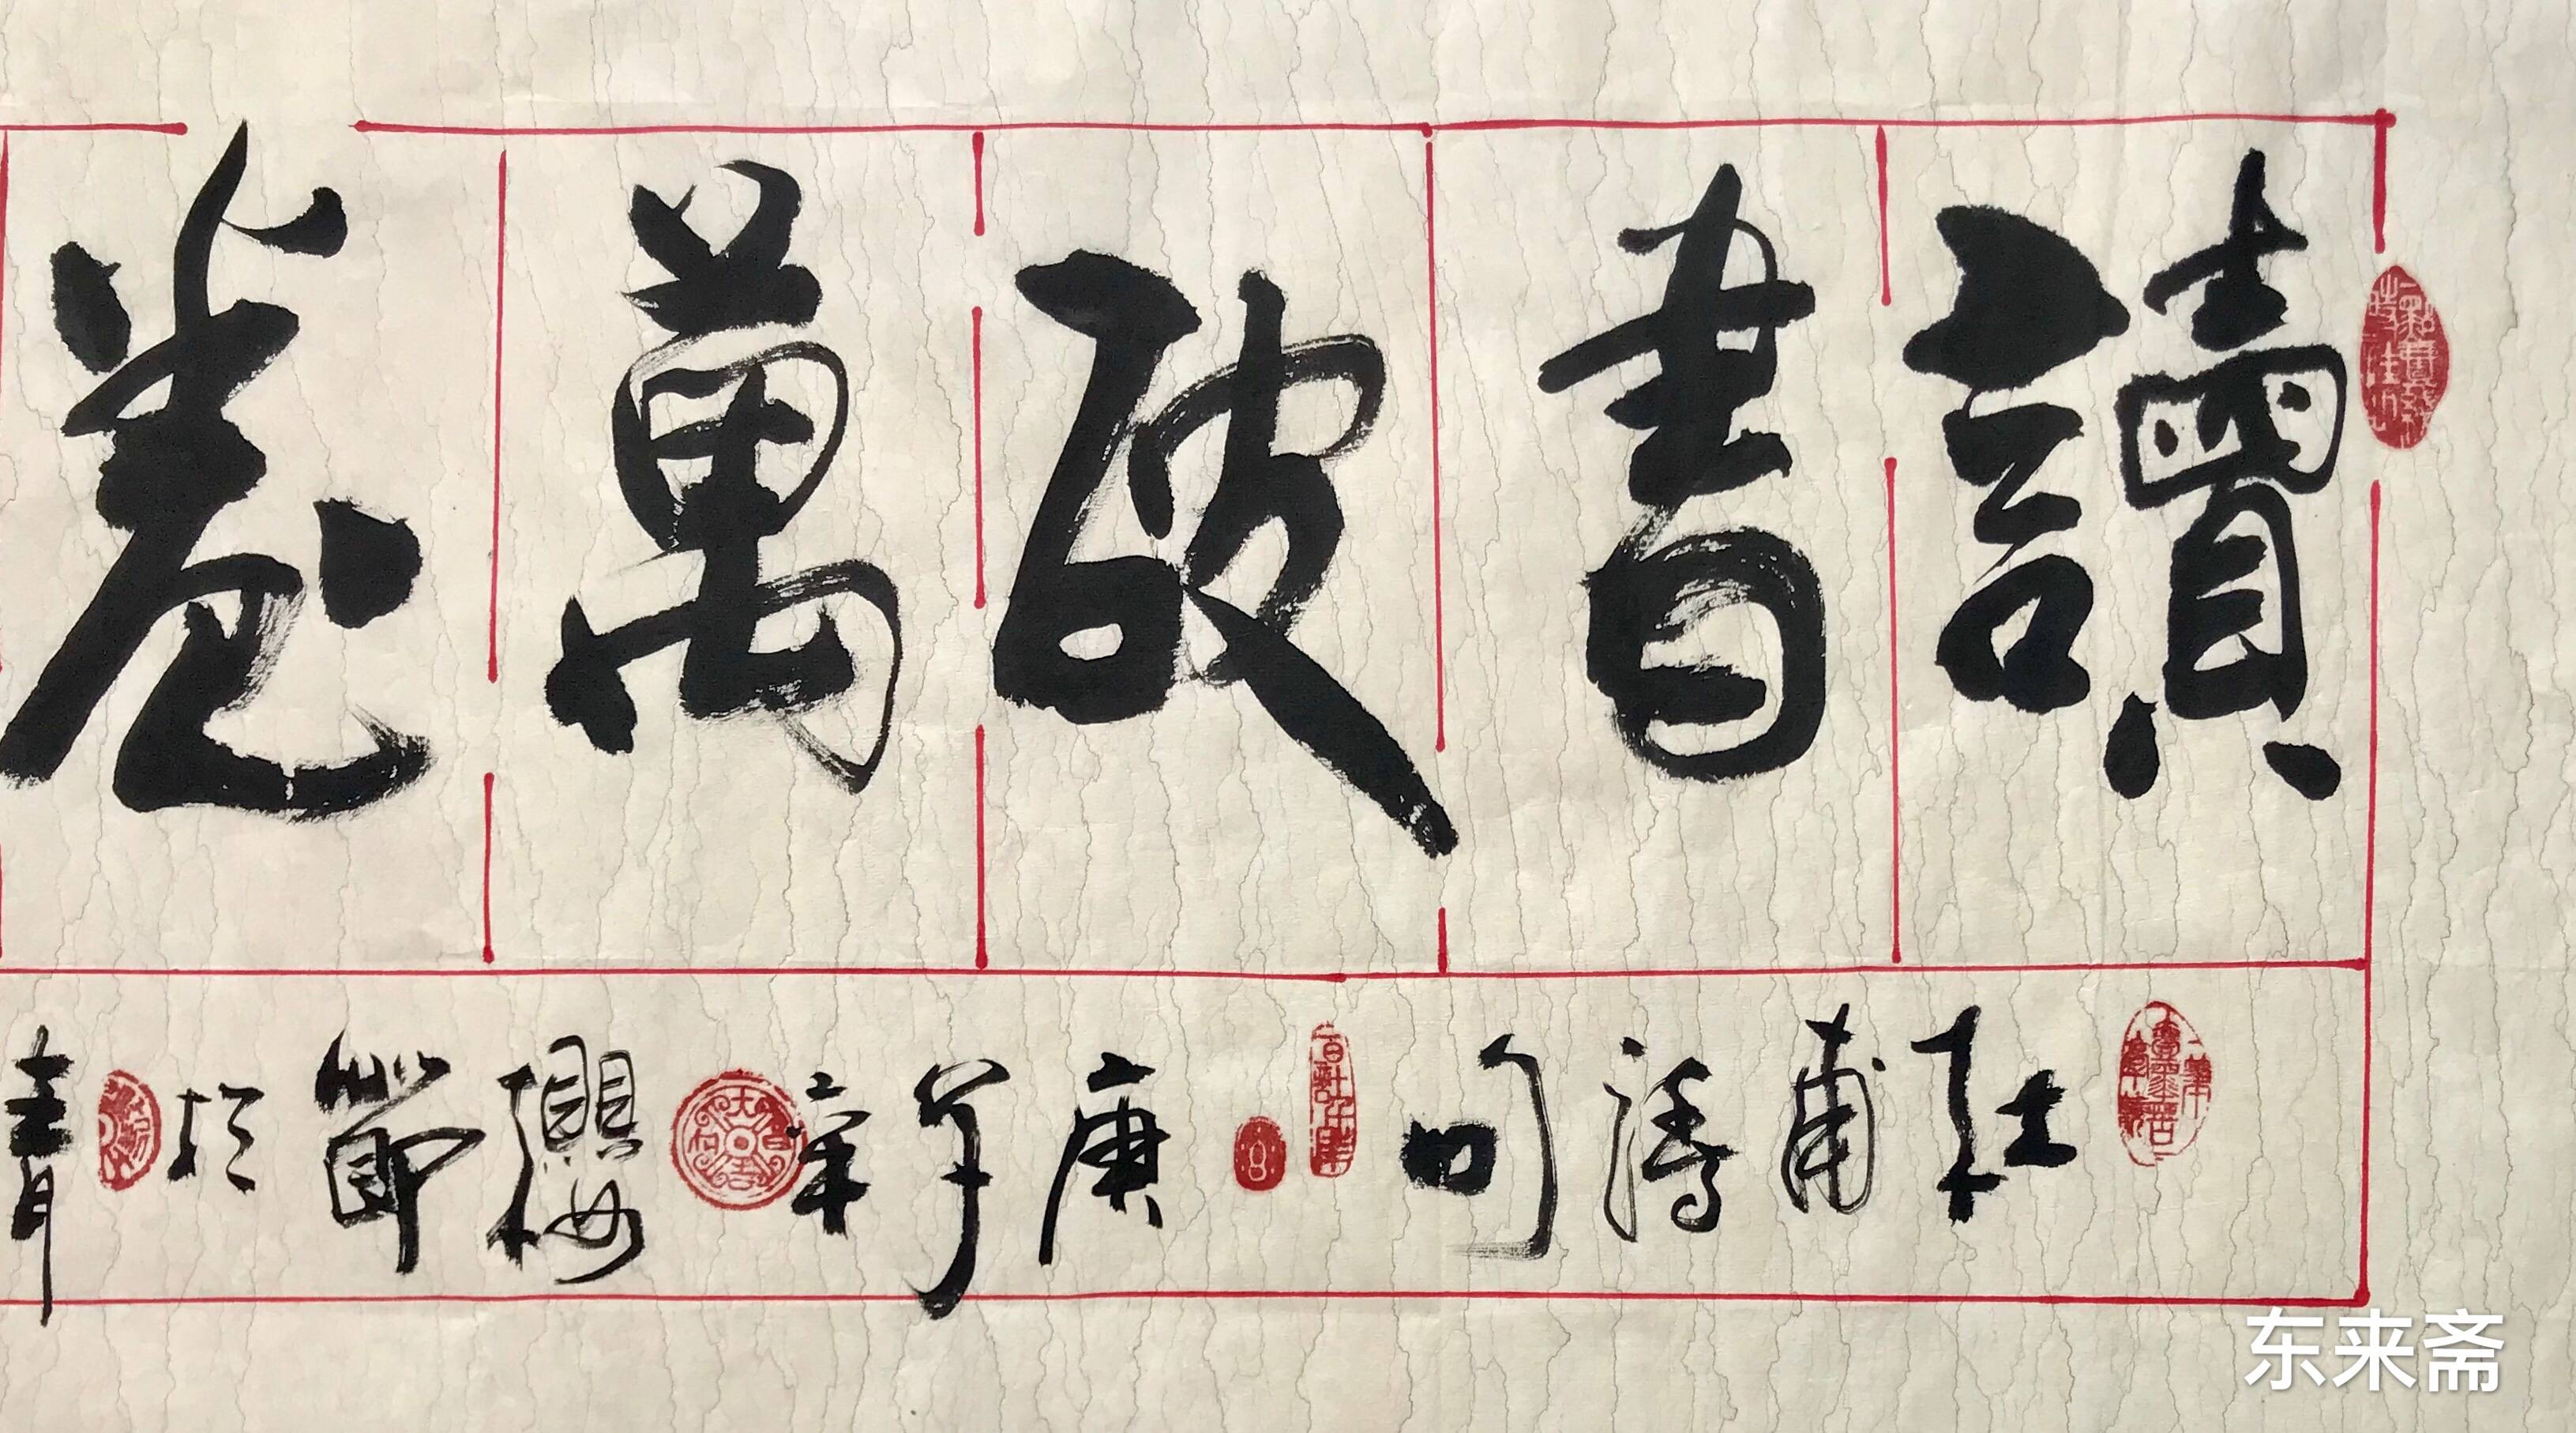 讀書破萬卷
杜甫詩句 庚子年 櫻節於青
东来斋